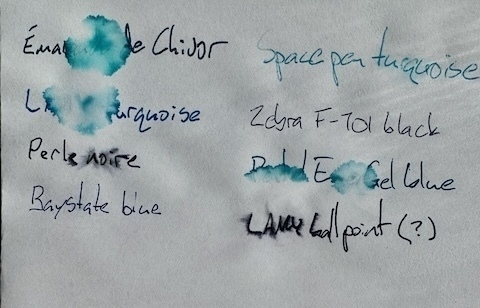 de Chivor
Turquoise
Perle noire
Baystate blue
Space pen turquoise
Zebra F-701 black
Gel blue
LAMY ballpoint (?)